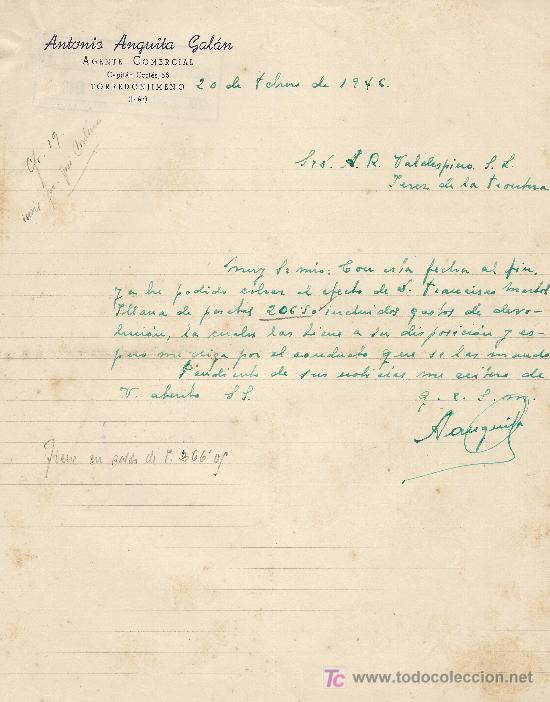 Antonio Anguita Galán
AGENTE COMERCIAL
Capitán Cortés, 56
TORREDONJIMENO
(Jaén)
20 de febrero de 1946.
c/. 19.
por José
Srs. A. R. Valdespino S. L.
Jerez de la Frontera
Muy Sr mio: Con esta fecha al fin,
ya he podido cobrar el efecto de D. Francisco
Illana de pesetas 206'50 incluidos gastos de devo-
lución, la cuales las tiene a su disposición y es-
pero me diga por el conducto que se las mando
Pendiente de sus noticias me reitero de
V. atento SS. q. e. s. m.
A Anguita
Tiene un saldo de P.
TC www.todocoleccion.net